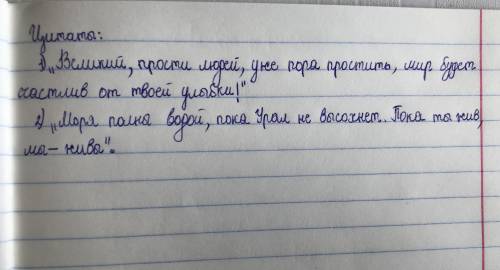 Цитаты:
1) „Великий, прости людей, уже пора простить, мир будет
счастлив от твоей улыбки!"
2) „Моря полны водой, пока Урал не высохнет. Пока ты жив,
мы – живы".